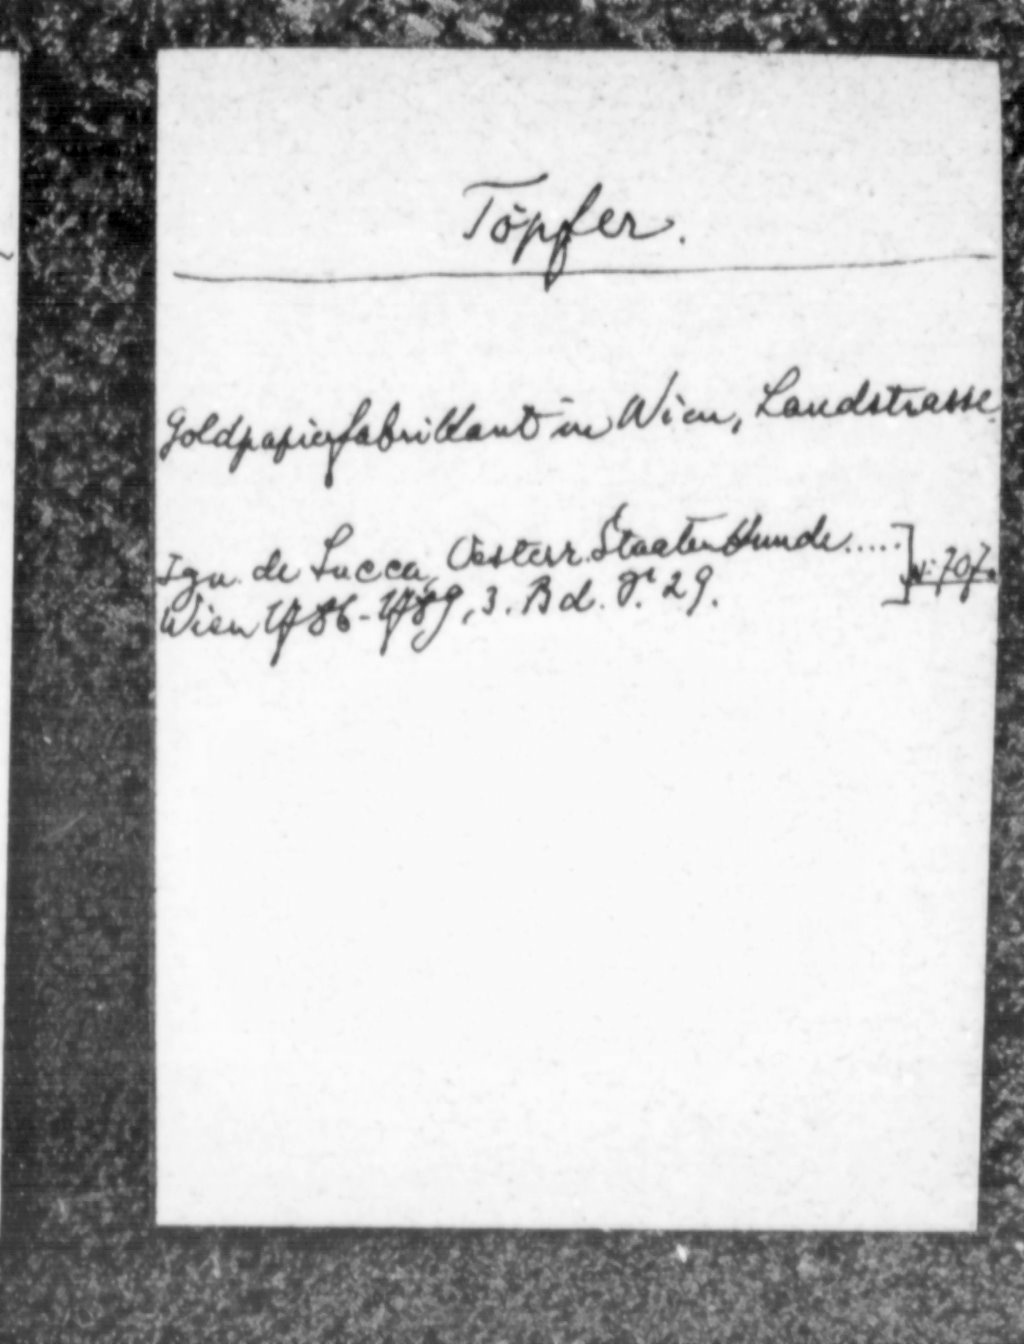 Töpfer.
Goldpapierfabrikant in Wien, Landstrasse.
Ign. de Lucca, Oesterr. Staatenkunde.....] N: 707.
Wien 1786-1789, 3. Bd. S. 29.